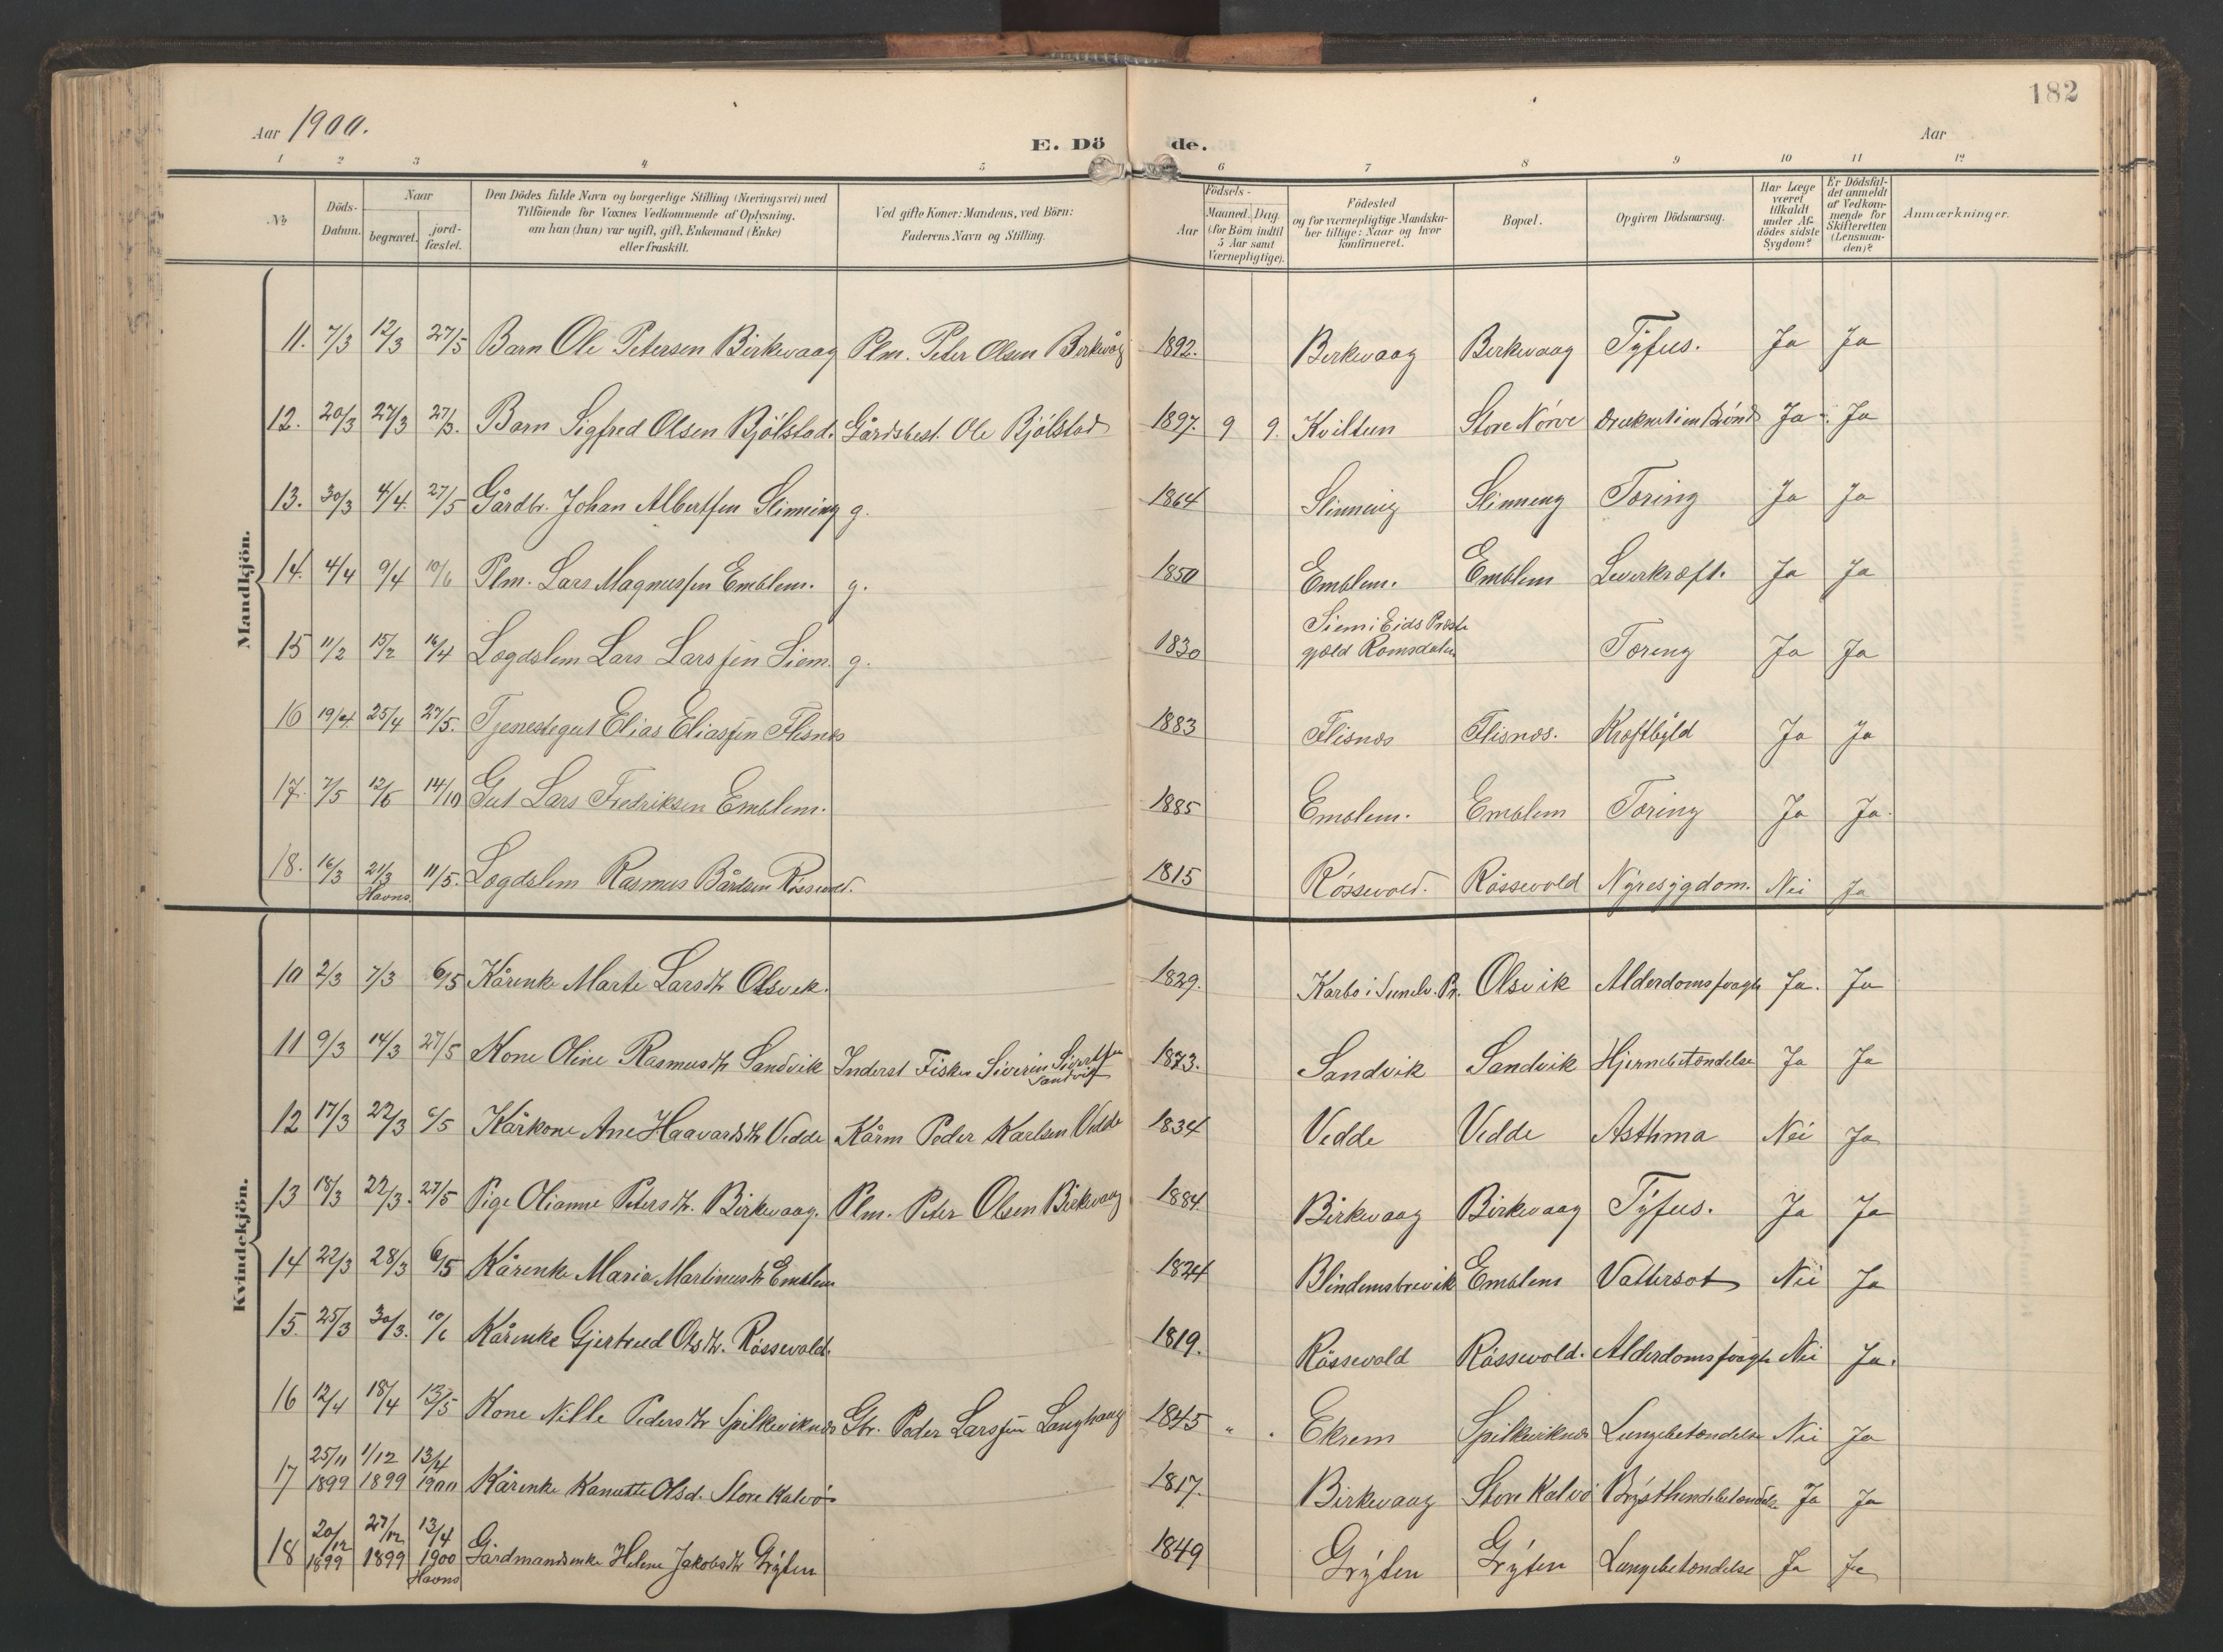 182
Aar 1900.
E. Dö de.
Aar
1 2 3 4 5 6 7 8 9 10 11 12
No
Döds-Datum.
Naar
begravet.
jordfæstet.
Den Dödes fulde Navn og borgerlige Stilling (Næringsvei) med
Tilföiende for Voxnes Vedkommende af Oplysning,
om han (hun) var ugift, gift, Enkemand (Enke)
eller fraskilt.
Ved gifte Koner: Mandens, ved Börn:
Faderens Navn og Stilling.
Födsels-
Aar
Maaned. Dag.
(for Börn indtil
5 Aar samt
Værnepligtige).
Födested
og for værnepligtige Mandska-
ber tillige: Naar og hvor
konfirmeret.
Bopæl.
Opgiven Dödsaarsag.
Har Læge
været
tilkaldt
under Af-
dödes sidste
Sygdom?
Er Dödsfal-
det anmeldt
af Vedkom-
mende for
Skifteretten
(Lensman-
den)?
Anmærkninger.
Mandkjön.
11. 7/3 12/3 27/5 Barn Ole Petersen Birkevaag Plm. Peter Olsen Birkevåg 1892. Birkevaag Birkevaag Tyfus. Ja Ja
12. 20/3 27/3 27/5. Barn Sigfred Olsen Bjölstad. Gårdsbest. Ole Bjölstad 1897. 9 9. Kviltun Store Nörve Druknet i en Brönd Ja Ja
13. 30/3 4/4. 27/5 Gårdbr. Johan Albertsen Slinning g. 1864 Slinning Slinning Tæring Ja Ja
14. 4/4 9/4 10/6 Plm. Lars Magnussen Emblem. g. 1850 Emblem. Emblem Leverkræft. Ja Ja
15 11/2 15/2 16/4 Lægdslem Lars Larssen Siem. g. 1830 Siem i Eids Præste
gjæld Romsdalen Tæring Ja Ja
16 19/4. 25/4 27/5. Tjenestegut Elias Eliassen Flisnes 1883 Flisnes Flisnes. Kræftbyld Ja Ja
17. 7/5 12/5 14/10 Gut Lars Fredriksen Emblem. 1885 Emblem. Emblem Tæring Ja Ja.
18. 16/3 21/3 11/5. Lægdslem Rasmus Bårdsen Rössevold. 1815 Rössevold. Rössevold Nyresygdom. Nei Ja
Havns.
Kvindekjön.
10 2/3 7/3 6/5 Kårenke Marte Larsdtr Olsvik. 1829. Karbo i Sunelv. Pr. Olsvik Alderdomssvagh. Ja. Ja
11 9/3 14/3 27/5 Kone Oline Rasmusdtr Sandvik Inderst Fisker Siverin Sivertsen
Sandvik 1873. Sandvik Sandvik Hjernebetændelse Ja Ja
12 17/3 22/3 6/5 Kårkone Ane Haavardsdtr Vedde Kårm Peder Karlsen Vedde 1834 Vedde Vedde Asthma Nei Ja
13 18/3 22/3. 27/5 Pige Olianne Petersdtr. Birkevaag. Plm. Peter Olsen Birkevaag 1884 Birkevaag Birkevaag Tyfus. Ja Ja
14 22/3 28/3 6/5 Kårenke Maria Martinusdtr Emblem 1824 Blindemsbrevik Emblem Vattersot Nei Ja
15. 25/3 30/3. 10/6 Kårenke Gjertrud Olsdtr. Rössevold. 1819. Rössevold Rössevold. Alderdomssvagh. Nei Ja.
16 12/4 18/4 13/5 Kone Nille Pedersdtr Spilkeviknes Gbr. Peder Larssen Langhaug 1845 " . Ekrem Spilkeviknes Lungebetændelse Nei Ja
25/11 1/12 13/4
17 1899 1899 1900 Kårenke Kanutte Olsd. Store Kalvö 1817. Birkevaag Store Kalvö Brysthindebetændelse Ja Ja
20/12 27/12 13/4
18 1899 1899 1900 Gårdmandsenke Helene Jakobsdtr Gryten 1849 Gryten Gryten Lungebetændelse Ja Ja
Havns